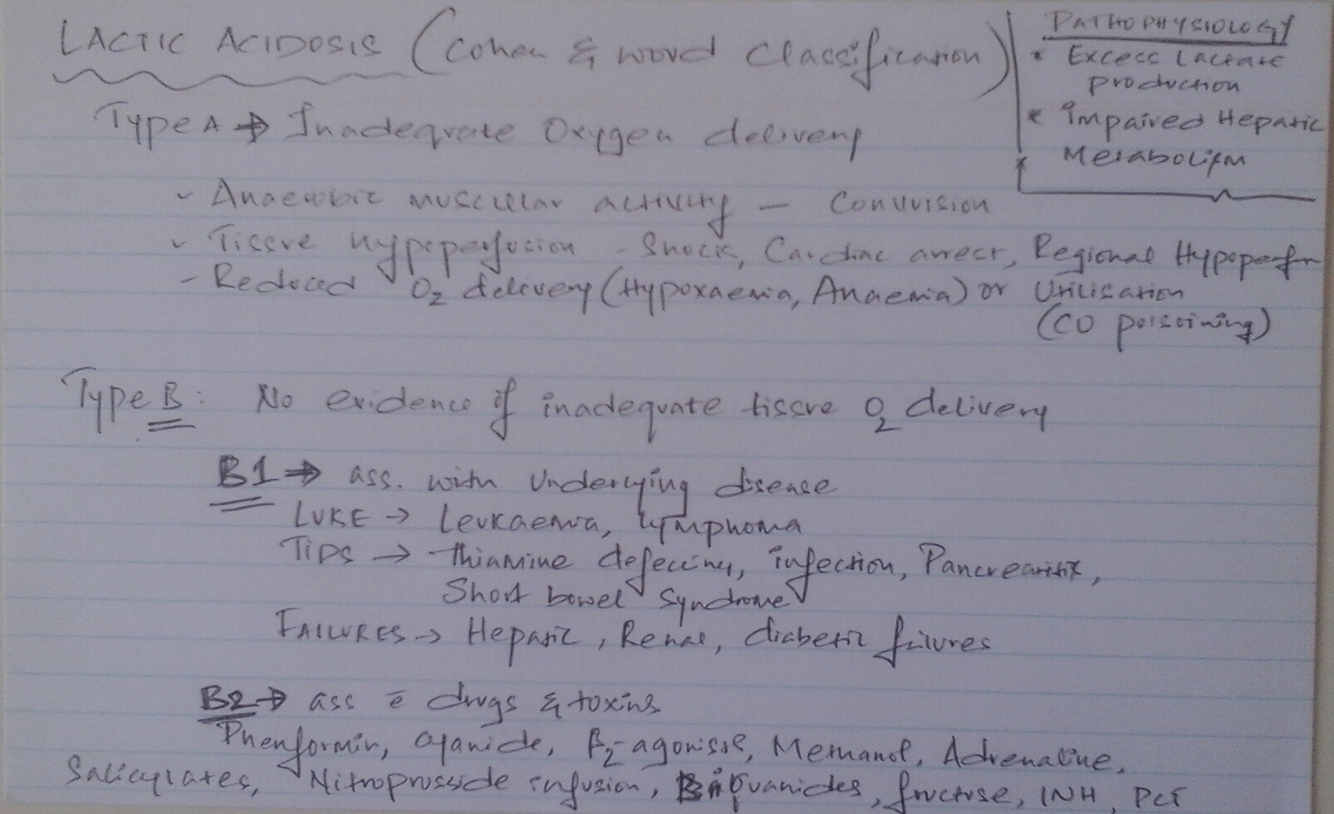 LACTIC ACIDOSIS (Cohen & Word Classification)
PATHOPHYSIOLOGY
* Excess Lactate
production
* Impaired Hepatic
Metabolism
Type A → Inadequate Oxygen delivery
- Anaerobic muscular activity - Convulsion
- Tissue hypoperfusion - Shock, Cardiac arrest, Regional Hypoperfn
- Reduced O2 delivery (Hypoxaemia, Anaemia) or Utilisation
(CO poisoining)
Type B: No evidence of inadequate tissue O2 delivery
B1 → ass. with Underlying disease
LUKE → Leukaemia, lymphoma
TIPS → Thiamine defeciney, infection, Pancreatitis,
Short bowel Syndrome
FAILURES → Hepatic, Renal, diabetic failures
B2 → ass c̄ drugs & toxins
Phenformin, cyanide, β2-agonists, Methanol, Adrenaline,
Salicylates, Nitroprusside infusion, Biguanides, fructose, INH, PCT